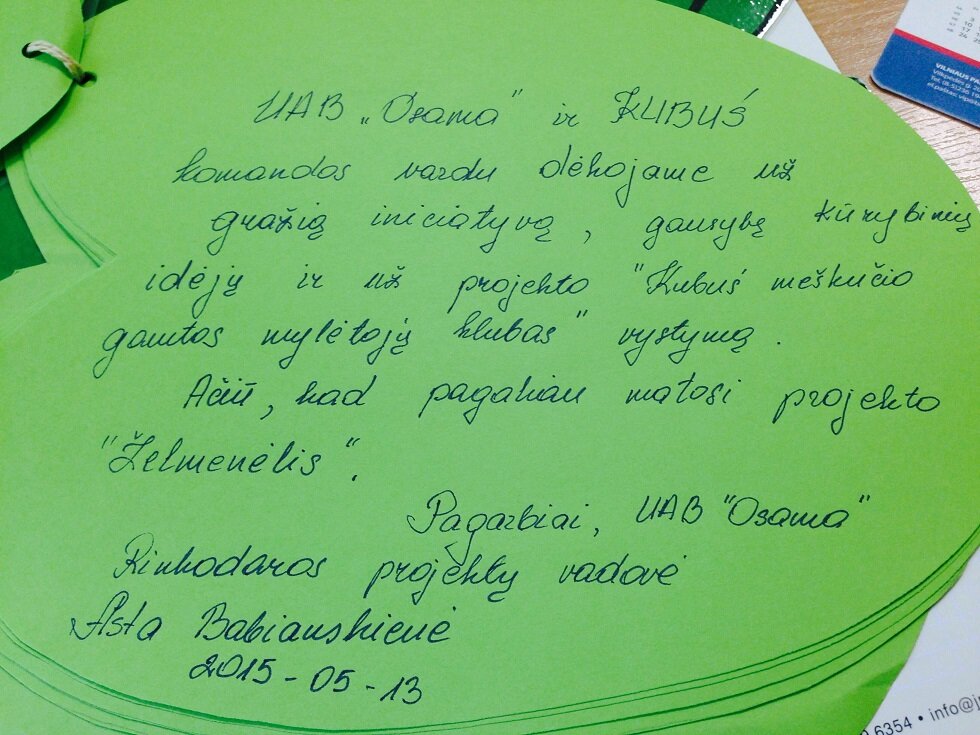 UAB „Osama" ir KUBUŚ
komandos vardu dėkojame už
gražią iniciatyvą, gausybę kūrybinių
idėjų ir už projekto "Kubuś meškučio
gamtos mylėtojų klubas" vystymą.
Ačiū, kad pagaliau matosi projekto
"Želmenėlis".
Pagarbiai, UAB "Osama"
Rinkodaros projektų vadovė
Asta Babianskienė
2015-05-13
VILNIAUS
6354 • info@j